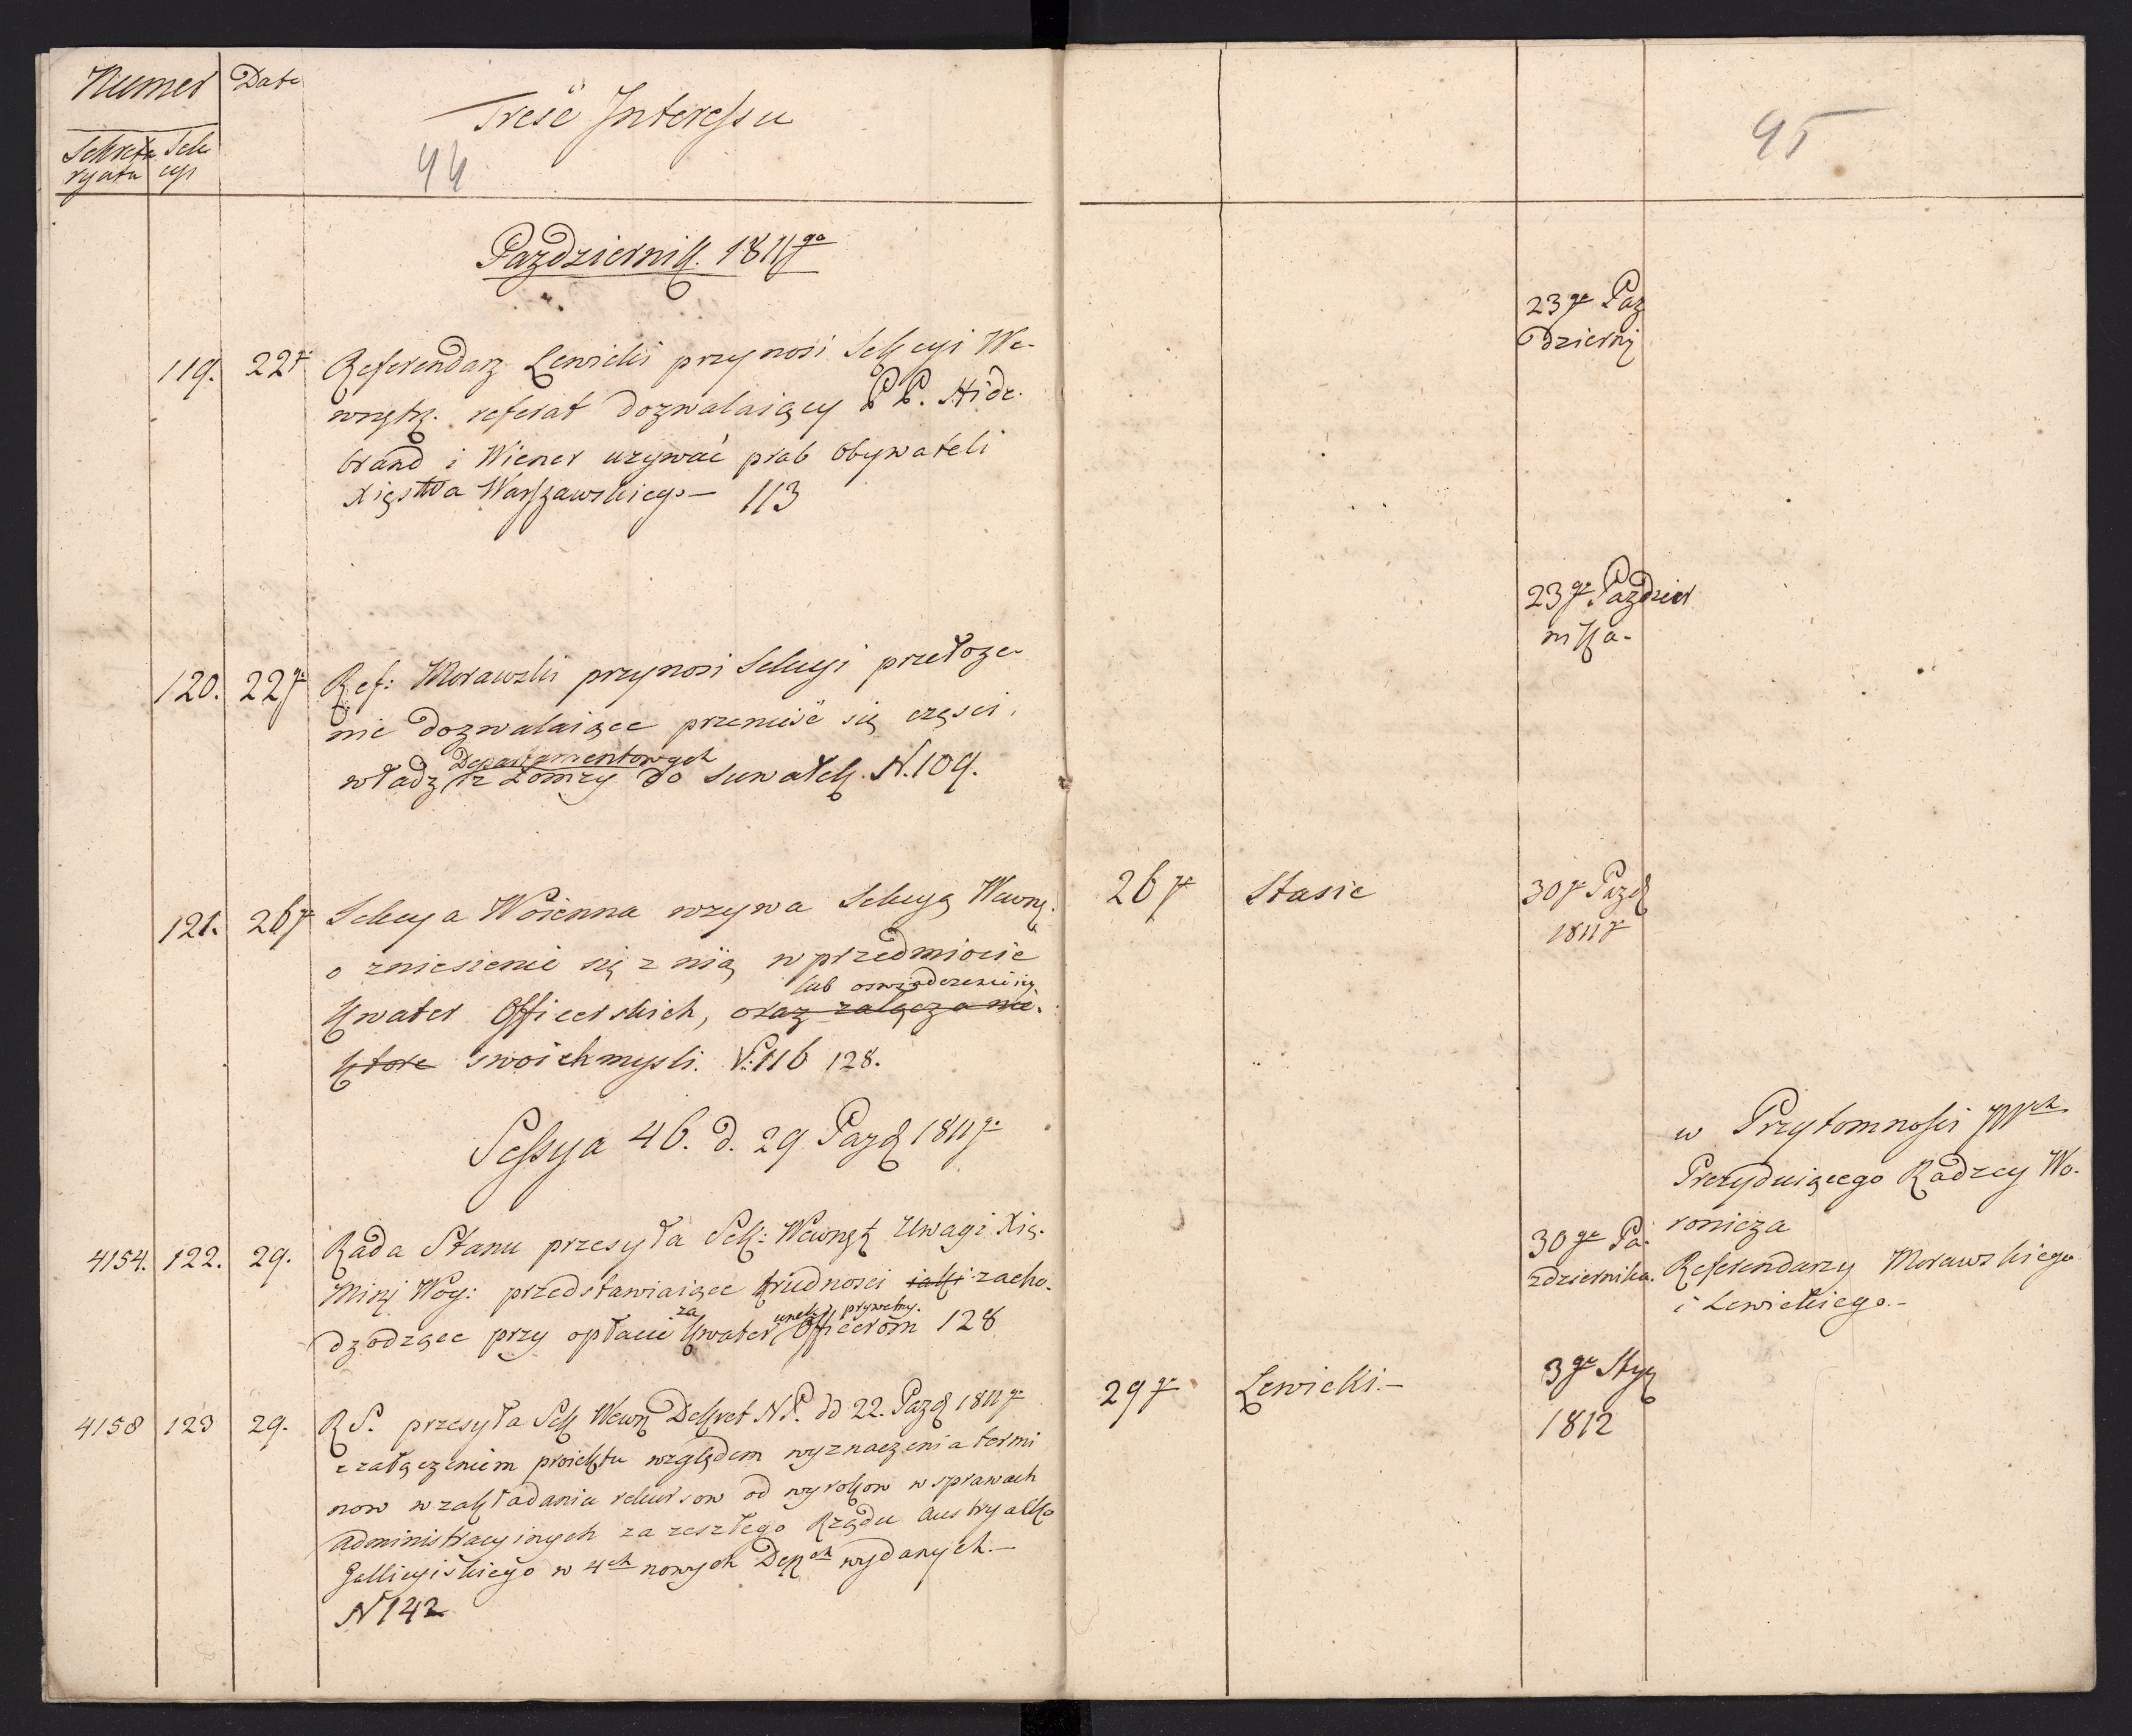 Numer
Date
Sekreta
ryatu
Sek
cyi
Treść Interessu
44
Pazdziernik. 1811go
119. 22go Referendarz Lewicki przynosi Sekcyi We-
wnętrz. referat dozwalaiący PP. Hide-
brand i Wiener uzywać praw obywateli
Xięstwa Warszawskiego— 113
120. 22go Ref: Morawski przynosi Sekcyi przełoże-
nie dozwalaiące przenieść się części
Departamentowych
władz z Łomzy do Suwałk. N.109.
121. 26go Sekcya Woienna wzywa Sekcyą Wewnę.
o zniesienie się z nią w przedmiocie
lub oswiadczenie iey
Kwater Officerskich, oraz załącza nie-
które swoich mysli. N.116 128.
Sessya 46. d. 29 Pazd 1811go
4154. 122. 29. Rada Stanu przesyła Sek: Wewnętz Uwagi Xię.
Minj Woy: przedstawiaiące trudnosci iakie zacho-
za prywatny.
dzodzące przy opłacie Kwater Officerom 128
4158 123 29. R S. przesyła Sek Wewn Dekret N P. dd 22. Pazd 1811go
z załączeniem proiektu względem wyznaczenia termi
now w zakładania rekursow od wyrokow w sprawach
administracyinych za zeszłego Rządu Austryacko
Gallicyiskiego w 4ch nowych Depch wydanych.—
N 142
45
23go Paz
dzierni
23go Pazdzier
nika-
26go Stasic 30go Pazd
1811go
w Przytomnosci JWch
Prezyduiącego Radzcy Wo-
ronicza
Referendarzy Morawskiego
i Lewickiego.-
30go Pa-
zdziernika.
29go Lewicki.— 3go Styz
1812